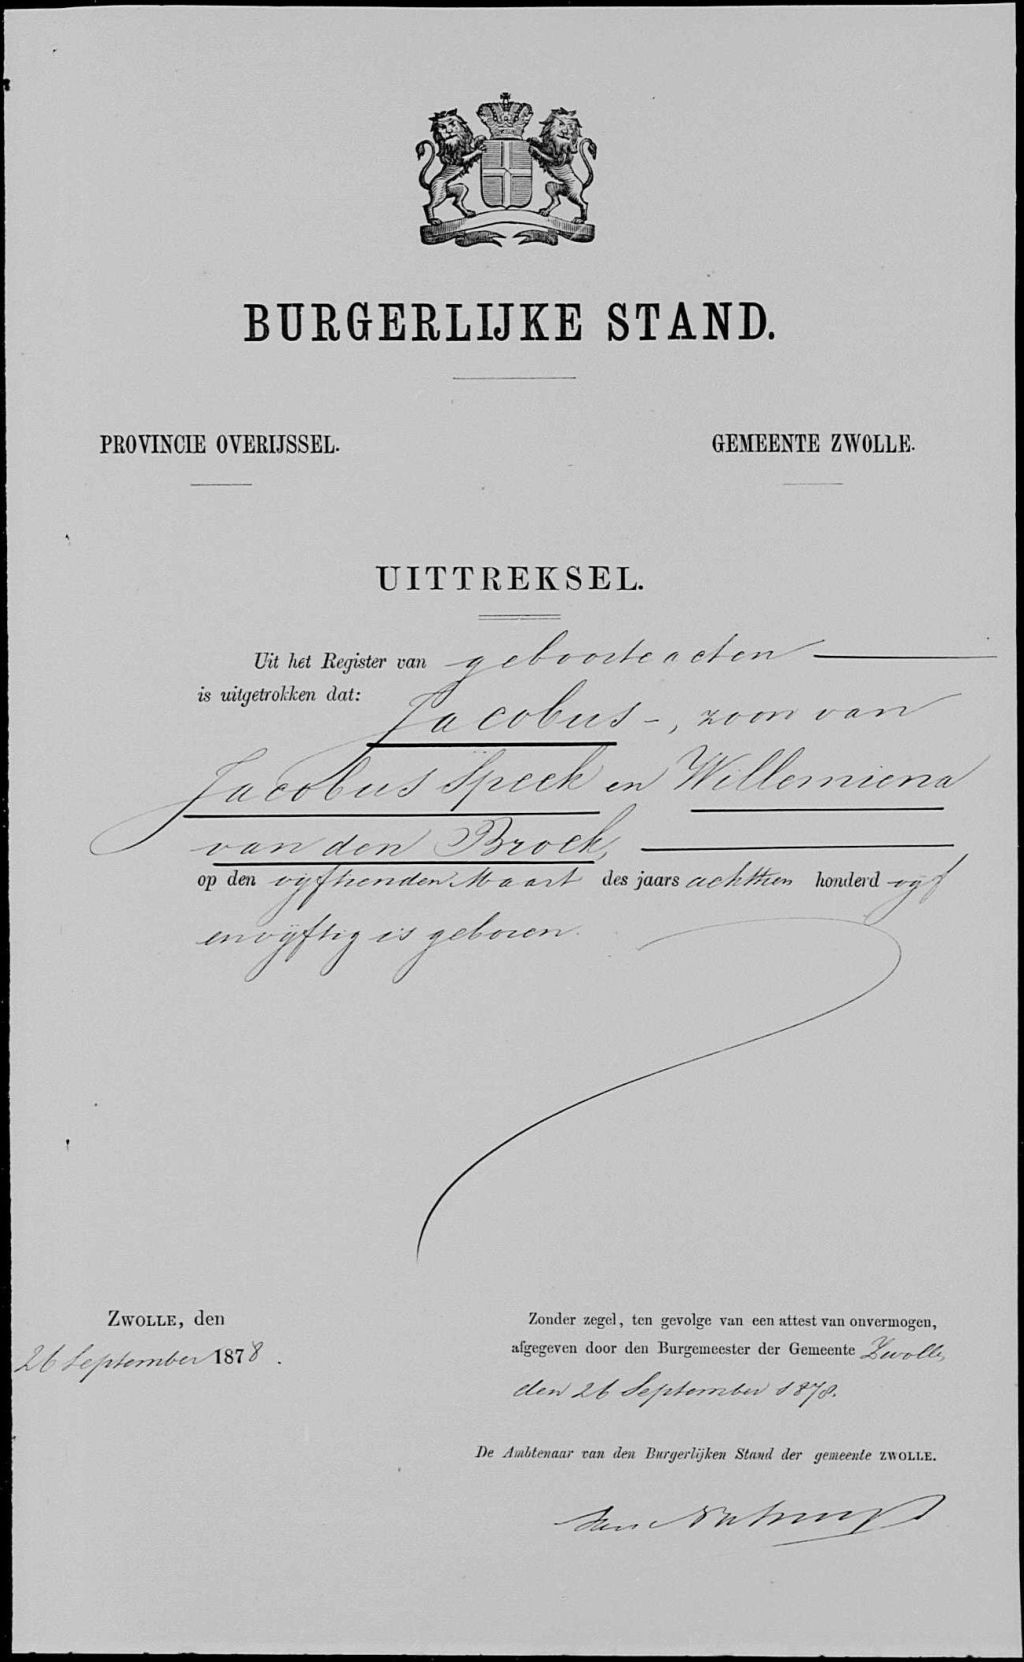 BURGERLIJKE STAND.
PROVINCIE OVERIJSSEL.
GEMEENTE ZWOLLE.
UITTREKSEL.
Uit het Register van geboorteacten
is uitgetrokken dat:
Jacobus -, zoon van
Jacobus Speek en Willemiena
van den Broek,
op den vyftienden Maart des jaars achttien honderd vyf
en vyftig is geboren.
ZWOLLE, den
26 September 1878.
Zonder zegel, ten gevolge van een attest van onvermogen,
afgegeven door den Burgemeester der Gemeente Zwolle,
den 26 September 1878.
De Ambtenaar van den Burgerlijken Stand der gemeente ZWOLLE.